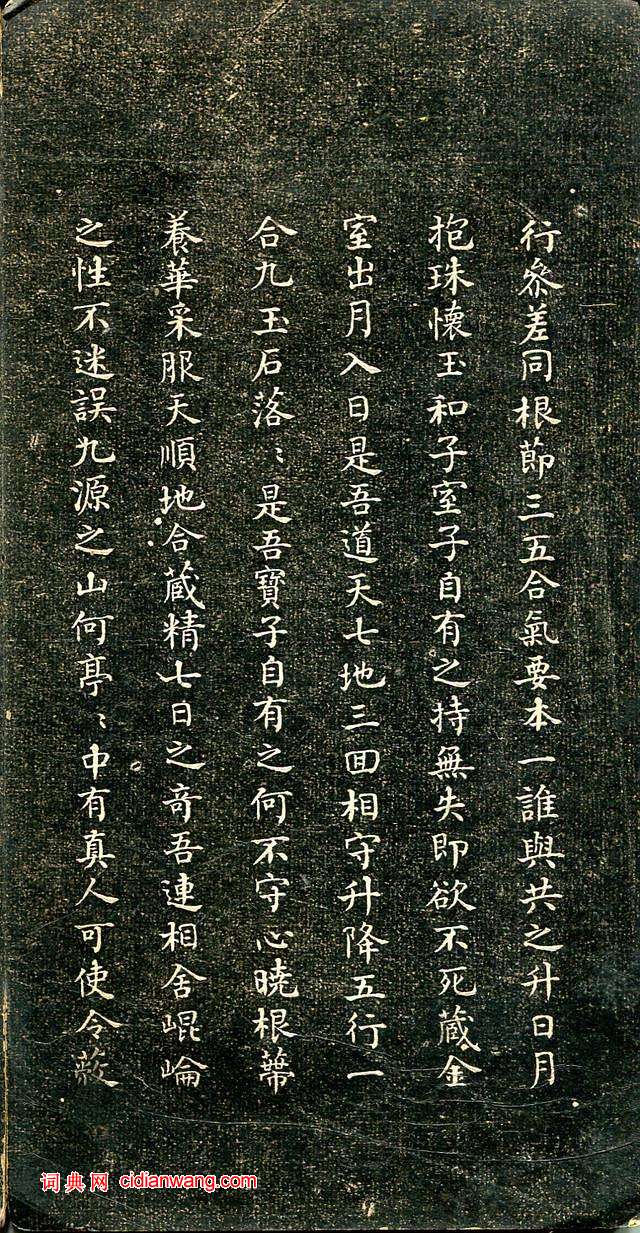 行叅差同根節三五合氣要本一誰與共之升日月
抱珠懷玉和子室子自有之持無失即欲不死藏金
室出月入日是吾道天七地三回相守升降五行一
合九玉石落〻是吾寶子自有之何不守心曉根蔕
養華采服天順地合藏精七日之奇吾連相舍崐崘
之性不迷誤九源之山何亭〻中有真人可使令蔽
词典网 cidianwang.com